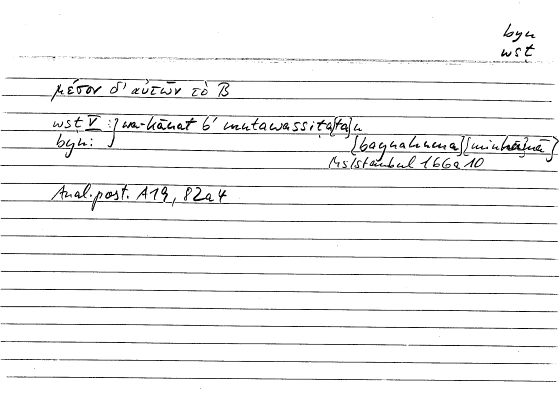 byn
wsṭ
μέσον δ' αὐτῶν τὸ B
wsṭ V :} wa-kānat b' mutawassiṭa[ta]n
byn: [baynahumā]
Ms Istanbul 166a10
Anal. post. A19, 82a4